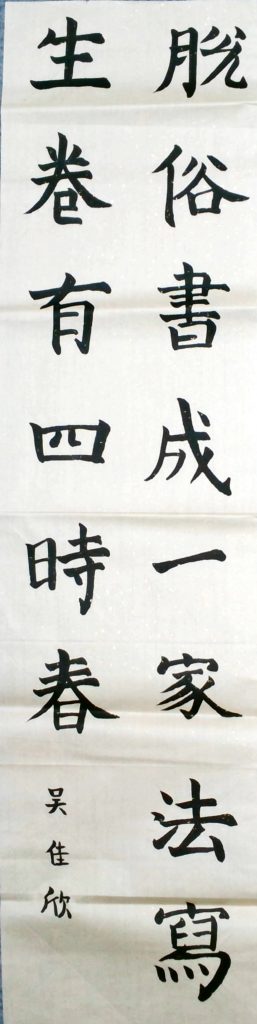 脱俗書成一家法寫
生卷有四時春
吴佳欣